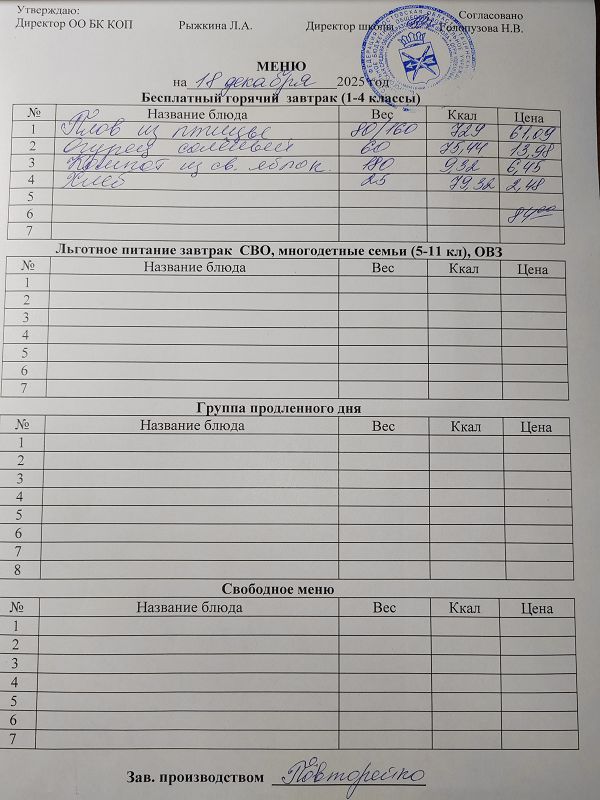 Утверждаю: Согласовано
Директор ОО БК КОП Рыжкина Л.А. Директор школы Голопузова Н.В.
МЕНЮ
на 18 декабря 2025 год
Бесплатный горячий завтрак (1-4 классы)
№ Название блюда Вес Ккал Цена
1 Плов из птицы 80/160 729 61,09
2 Огурец соленый 60 75,44 13,98
3 Компот из св. яблок. 180 9,32 6,45
4 Хлеб 25 79,32 2,48
5
6 84,00
7
Льготное питание завтрак СВО, многодетные семьи (5-11 кл), ОВЗ
№ Название блюда Вес Ккал Цена
1
2
3
4
5
6
7
Группа продленного дня
№ Название блюда Вес Ккал Цена
1
2
3
4
5
6
7
8
Свободное меню
№ Название блюда Вес Ккал Цена
1
2
3
4
5
6
7
Зав. производством Повторейко